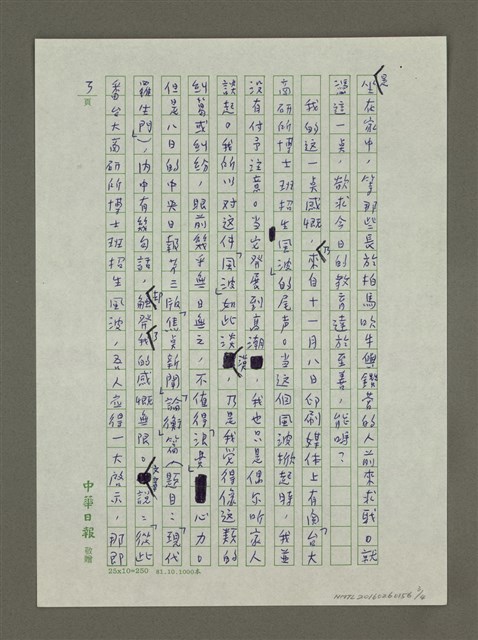 是坐在家中，等那些長於拍馬吹牛與鑽營的人前來求職。就
憑這一点，欲求今日的教育達於至善，能嗎？
我的这一点感慨，乃來自十一月八日印刷媒体上有関「台大
商研所博士班招生風波」的尾声。当这個風波掀起時，我並
没有付予注意。当它發展到高潮，我也只是偶尔听家人
談起。我所以对这件「風波」如此淡漠，乃是我覚得像这類的
糾葛或糾紛，眼前幾乎無日無之，不值得浪费心力。
但是八日的中央日報第三版「焦点新聞」「論衡」篇（題目：「現代
羅生門」），内中有幾句話，触發了我的感慨無限。文章說：「從此
番台大商研所博士班招生風波，吾人应得一大啓示，那即
3頁
中華日報 敬贈
25x10=250 81.10.1000本